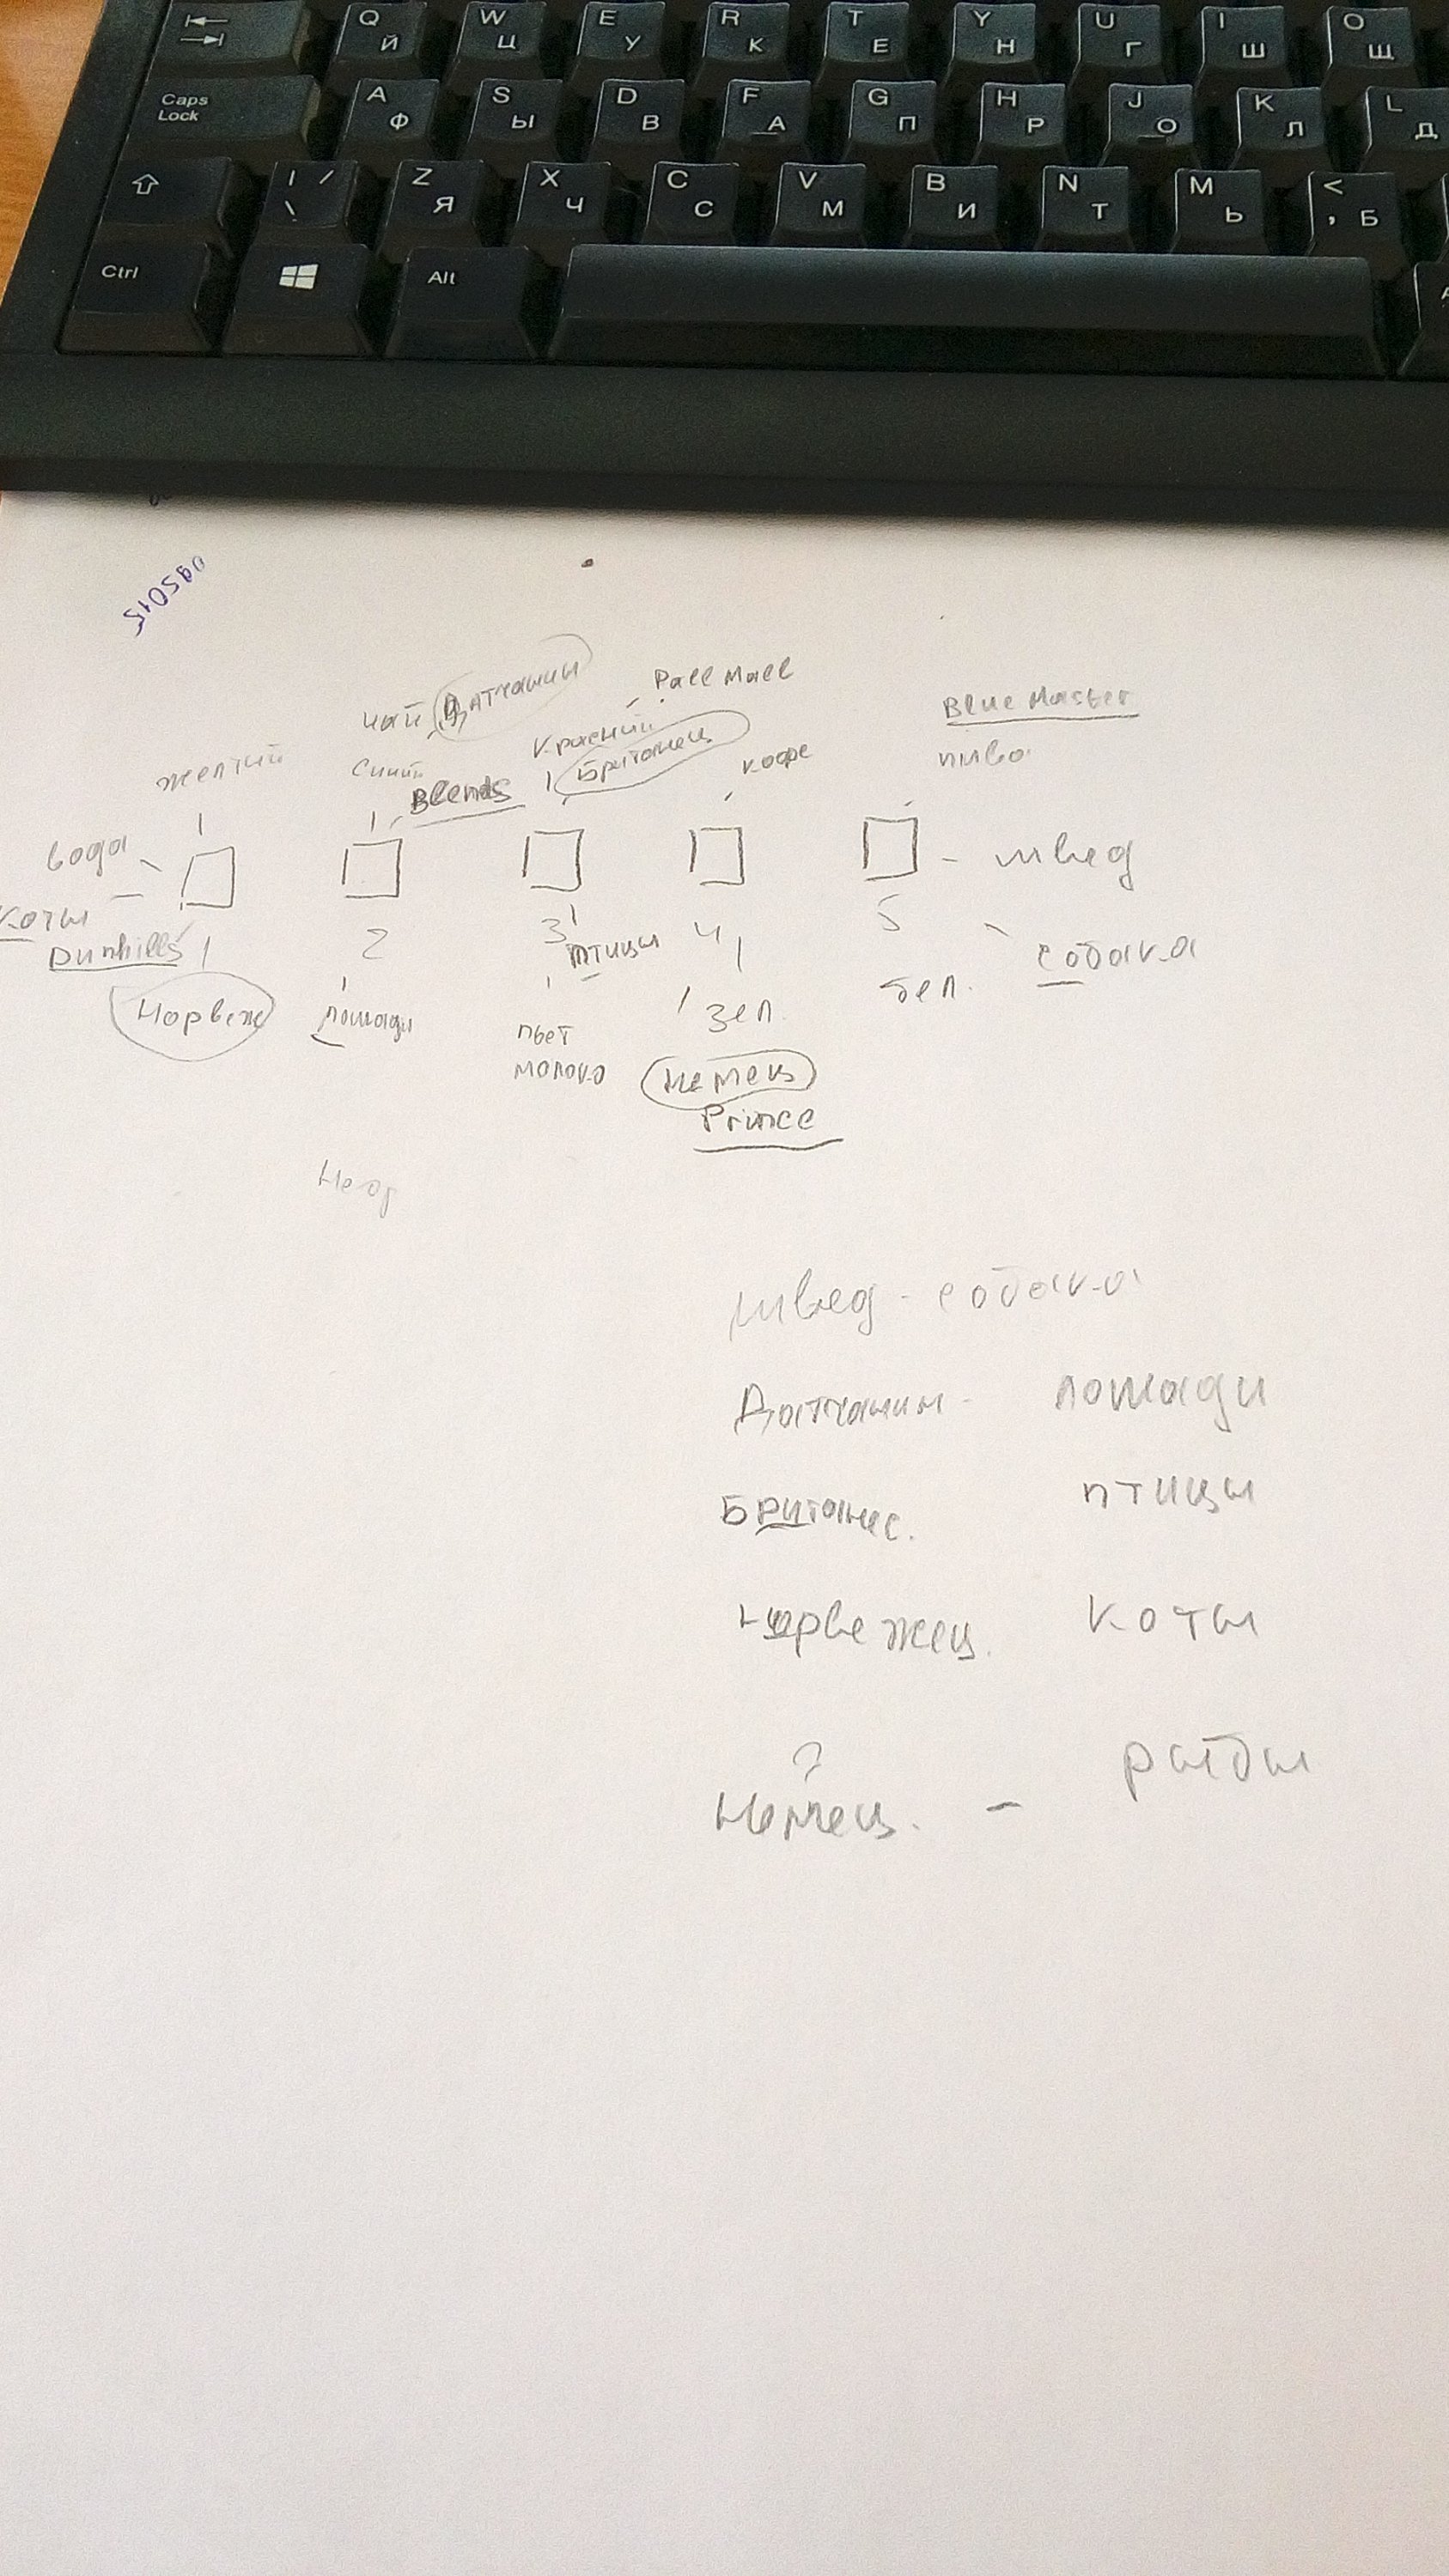 Q W E R T Y U I O
Й Ц У К Е Н Г Ш Щ
Caps Lock A S D F G H J K L
Ф Ы В А П Р О Л Д
| / Z X C V B N M <
\ Я Ч С М И Т Ь , Б
Ctrl Alt
чай Датчанин Pall Mall
Blue Master
желтый синий красный кофе пиво
Blends Британец
вода швед
коты 1 2 3 4 5
Dunhills птицы собака
Норвеж лошади пьет зел. бел.
молоко Немец
Prince
швед - собака
Датчанин - лошади
Британс. птицы
норвежец. коты
?
Немец. - рыбы